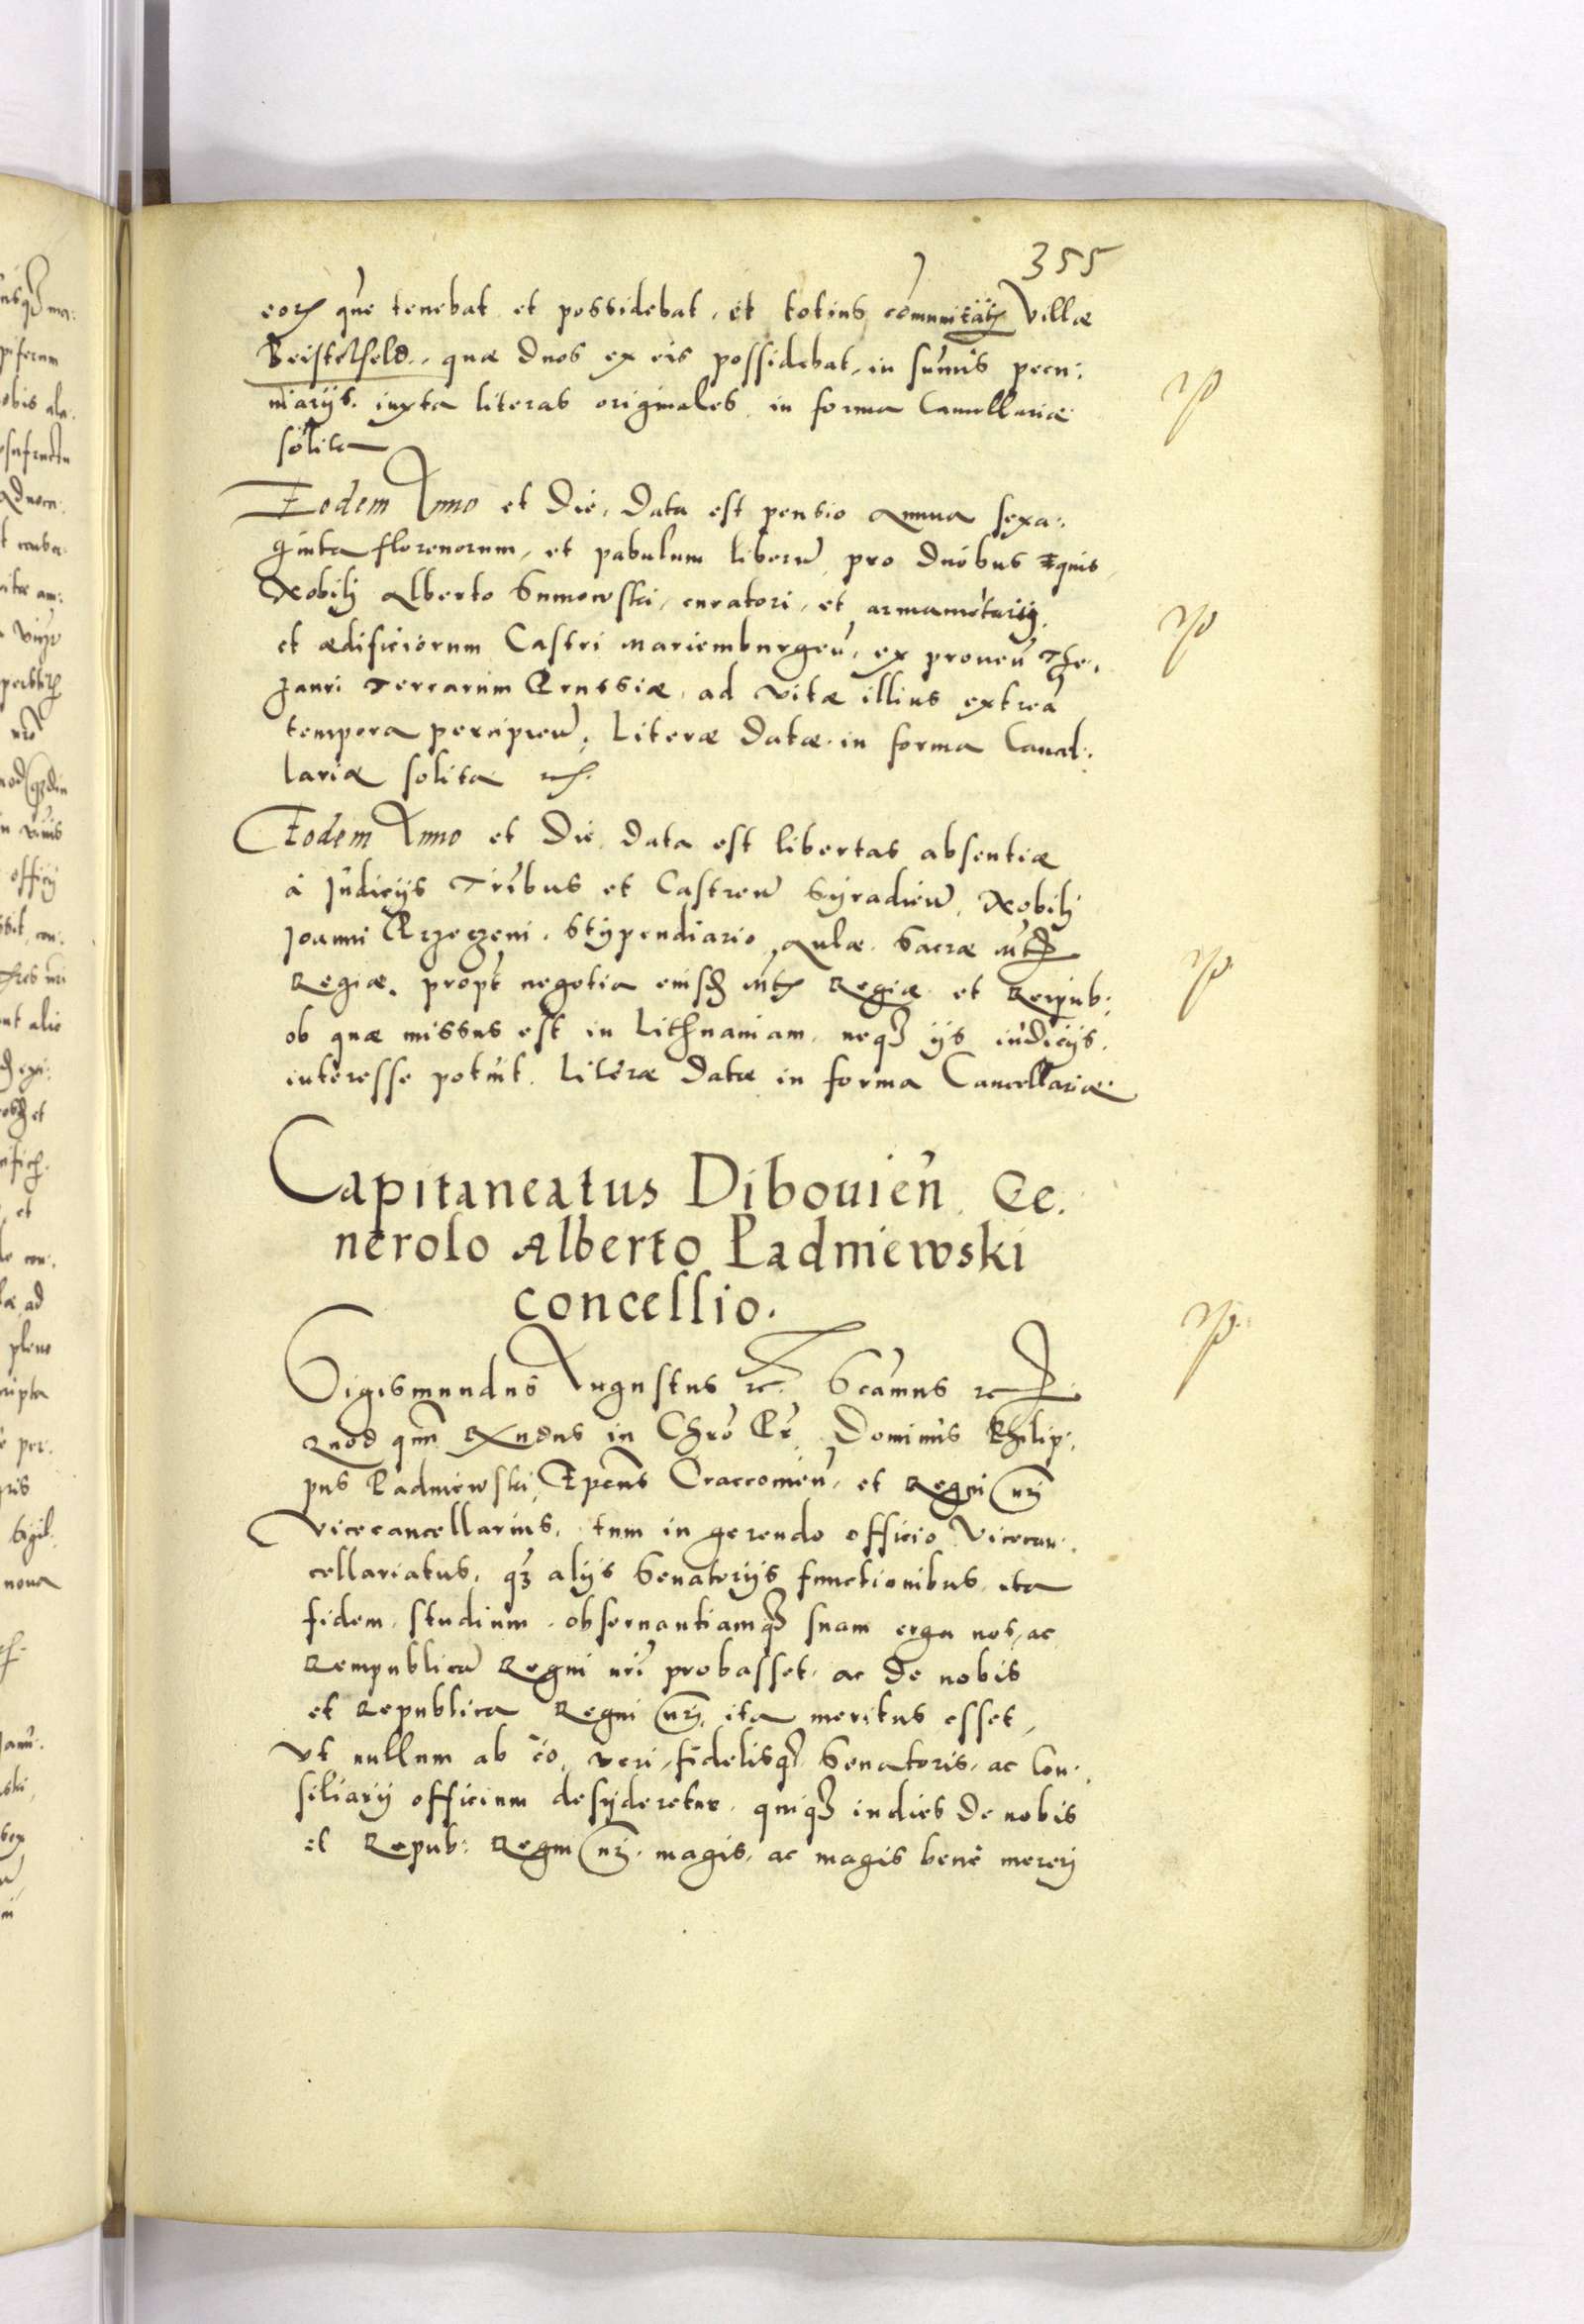 355
eorꝝ que tenebat et possidebat, et totius cōmunitatꝭ Villæ
Beistelfeld, quæ duos ex eis possidebat, in sūmis pecu:
niarijs, iuxta literas originales in forma Cancellariæ
solita
Eodem Anno et Die, Data est pensio annua sexa:
ginta florenorum, et pabulum liberū pro duobus Equis,
Nobilj Alberto Sumowski, curatori, et armamētarij,
et ædificiorum Castri Mariemburgeñ, ex proueñ The:
zauri Terrarum Prussiæ, ad vitæ illius extrea
tempora percipieñ, Literæ Datæ in forma Cancel:
lariæ solita
Eodem Anno et Die data est libertas absentiæ
à Judicijs Tribus et Castreñ Syradieñ, Nobilj
Joanni Krzeczeni, Stypendiario Aulæ Sacræ Mtꝭ
Regiæ, propt negotia eiusd Mtꝭ Regiæ et Reipub:
ob quæ missus est in Lithuaniam, neqꝫ ijs iudicijs,
interesse potuit. Literæ Datæ in forma Cancellariæ.
Capitaneatus Dibouień Ge:
neroso Alberto Padniewski
concessio.
Sigismundus Augustus ꝛc. Scamus ꝛc
Quod qum Rxndus in Chro Pr Dominus Philip:
pus Padniewski, Epcus Craccouień, et Regni nri
Vicecancellarius, tum in gerendo officio Vicecan:
cellariatus, qꝫ alijs Senatorijs functionibus, ita
fidem, studium, obseruantiamqꝫ suam erga nos, ac
Rempublicā Regni nri probasset, ac de nobis
et Republica Regni nri, ita meritus esset,
Vt nullum ab eo, veri, fidelisqꝫ Senatoris, ac Con:
siliarij officium desyderetur, quiqꝫ indies De nobis
et Repub: Regni nri, magis, ac magis benè mererj